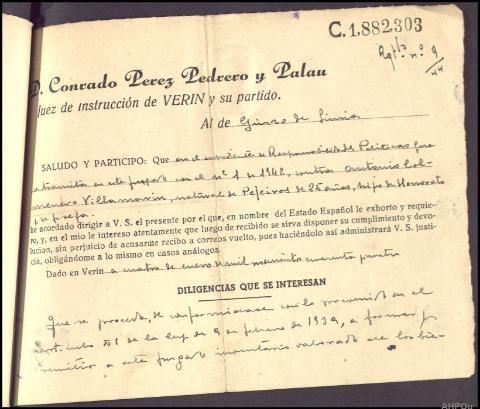 C.1.882303
Rgtro nº 9/44
D. Conrado Perez Pedrero y Palau
Juez de instrucción de VERIN y su partido.
Al de Ginzo de Limia
SALUDO Y PARTICIPO: Que en el expediente de Responsabilidades Politicas que
se tramita en este juzgado con el nº 1 de 1942, contra Antonio Col-
menero Villamarin, natural de Pejeiros de 25 años, hijo de Honorato
y de Josefa.
he acordado dirigir a V. S. el presente por el que, en nombre del Estado Español le exhorto y requie-
ro, y, en el mio le intereso atentamente que luego de recibido se sirva disponer su cumplimiento y devo-
lucion, sin perjuicio de acusarme recibo a correos vuelto, pues haciéndolo así administrará V. S. justi-
cia, obligándome a lo mismo en casos análogos.
Dado en Verin a cuatro de enero de mil novecientos cuarenta y cuatro
DILIGENCIAS QUE SE INTERESAN
Que se proceda, de conformidad con lo prevenido en el
articulo 51 de la ley de 9 de febrero de 1939, a formar y
remitir a este juzgado inventario valorado de los bie-
AHPOu